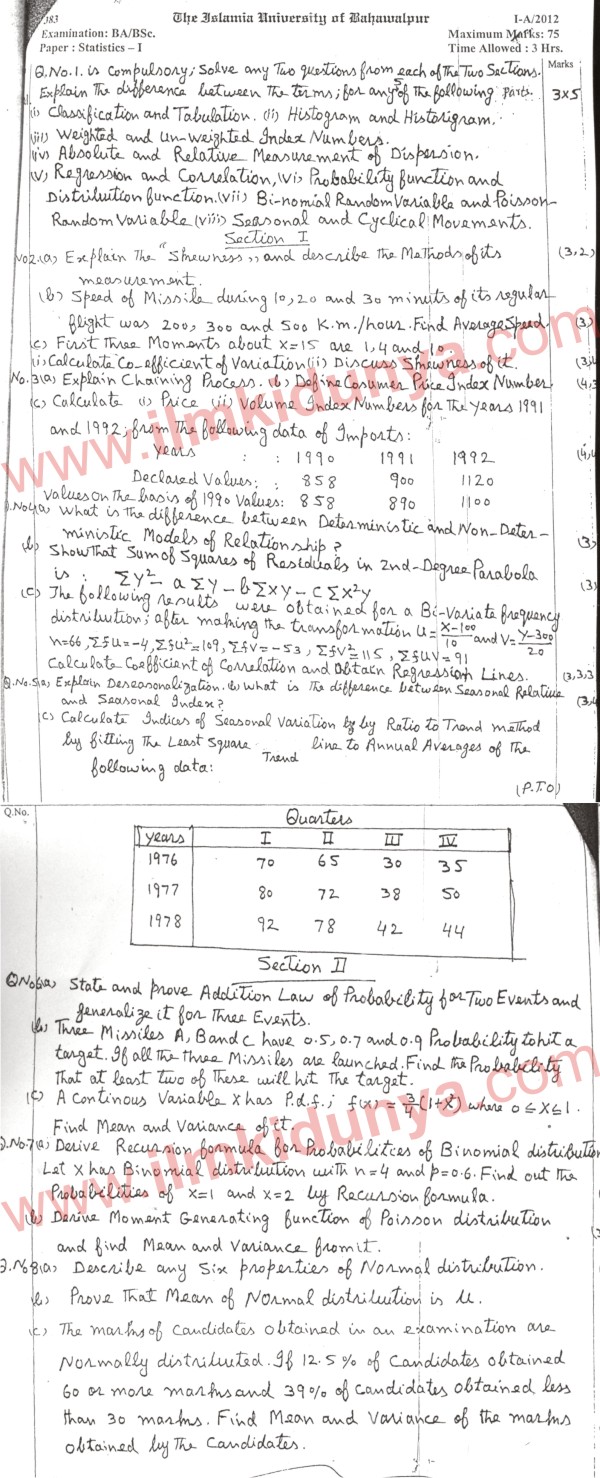 383 The Islamia University of Bahawalpur I-A/2012
Examination: BA/BSc. Maximum Marks: 75
Paper : Statistics – I Time Allowed : 3 Hrs.
Q.No.1. is Compulsory; Solve any Two questions from each of the Two Sections. Marks
Explain the difference between the terms; for any 5 of the following parts. 3x5
(i) Classification and Tabulation. (ii) Histogram and Historigram.
(iii) Weighted and Un-weighted Index Numbers.
(iv) Absolute and Relative Measurement of Dispersion.
(v) Regression and Correlation, (vi) Probability function and
Distribution function. (vii) Bi-nomial Random Variable and Poisson-
Random Variable (viii) Seasonal and Cyclical Movements.
Section I
No2.(a) Explain The "Skewness,, and describe the Methods of its (3,2)
measurement.
(b) Speed of Missile during 10, 20 and 30 minuts of its regular
flight was 200, 300 and 500 K.m./hour. Find Average Speed. (3)
(c) First Three Moments about x=15 are 1, 4 and 10
(i) Calculate Co-efficient of Variation (ii) Discuss Skewness of it. (3,4
No.3(a) Explain Chaining Process. (b) Define Cosumer Price Index Number (4,3
(c) Calculate (i) Price (ii) Volume Index Numbers for The years 1991
and 1992, from The following data of Imports:
years : : 1990 1991 1992 (4,4
Declared Values: : 858 900 1120
Values on The basis of 1990 Values: 858 890 1100
No4(a) What is The difference between Deterministic and Non-Deter-
ministic Models of Relationship? (3)
(b) Show That Sum of Squares of Residuals in 2nd-Degree Parabola
is : ΣY²- aΣY - bΣXY - CΣX²Y (3)
(c) The following results were obtained for a Bi-Variate frequency
distribution; after making the transformation U= X-100/10 and V= Y-300/20
n=66, ΣfU=-4, ΣfU²=109, ΣfV=-53, ΣfV²=115, ΣfUV=91
Calculate Coefficient of Correlation and Obtain Regression Lines. (3,3,3
Q.No.5(a) Explain Deseasonalization. (b) What is The difference between Seasonal Relative
and Seasonal Index? (3,4
(c) Calculate Indices of Seasonal Variation by by Ratio to Trend method
by fitting The Least Square Trend line to Annual Averages of The
following data:
(P.T.O)
www.ilmkidunya.com
Q.No. Quarters
years I II III IV
1976 70 65 30 35
1977 80 72 38 50
1978 92 78 42 44
Section II
QNo6(a) State and prove Addition Law of Probability for Two Events and
generalize it for Three Events.
(b) Three Missiles A, B and C have 0.5, 0.7 and 0.9 Probability to hit a
target. If all the three Missiles are launched. Find the Probability
That at least two of These will hit The target.
(c) A Continous Variable X has P.d.f.; f(x) = 3/4(1+x²) where 0≤X≤1.
Find Mean and Variance of it.
No7(a) Derive Recursion formula for Probabilities of Binomial distribution
Let X has Binomial distribution with n=4 and p=0.6. Find out the
Probabilities of x=1 and x=2 by Recursion formula.
(b) Derive Moment Generating function of Poisson distribution
and find Mean and Variance from it.
No8(a) Describe any Six properties of Normal distribution.
(b) Prove That Mean of Normal distribution is μ.
(c) The marks of Candidates obtained in an examination are
Normally distributed. If 12.5% of Candidates obtained
60 or more marks and 39% of Candidates obtained less
than 30 marks. Find Mean and Variance of the marks
obtained by The Candidates.
www.ilmkidunya.com